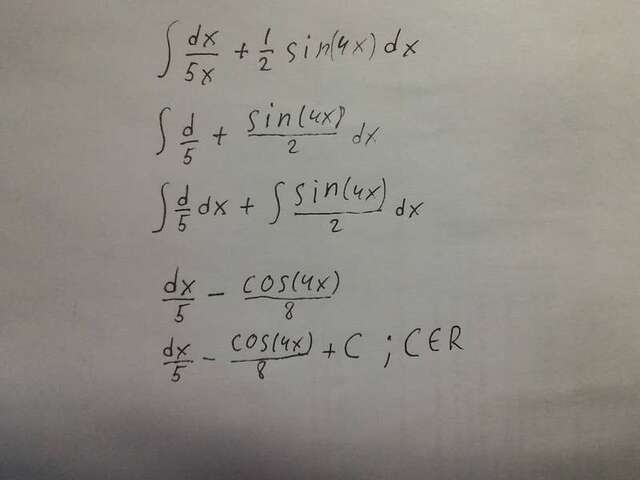 ∫ dx/5x + 1/2 sin(4x) dx
∫ d/5 + sin(4x)/2 dx
∫ d/5 dx + ∫ sin(4x)/2 dx
dx/5 - cos(4x)/8
dx/5 - cos(4x)/8 + C ; C∈R